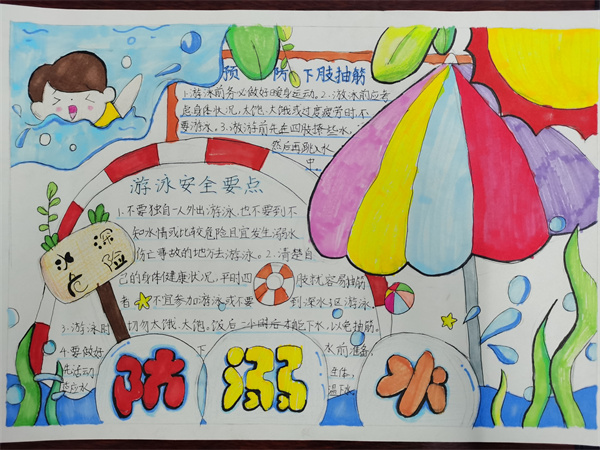 预防下肢抽筋
1.游泳前务必做好暖身运动。2.游泳前应考
虑身体状况,太饱、太饿或过度疲劳时,不
要游泳。3.游泳前先在四肢撩些水,
然后再跳入水
中。
游泳安全要点
1.不要独自一人外出游泳,也不要到不
知水情或比较危险且宜发生溺水
伤亡事故的地方去游泳。2.清楚自
己的身体健康状况,平时四肢就容易抽筋
者不宜参加游泳或不要到深水区游泳。
3.游泳时切勿太饿、太饱。饭后一小时后才能下水,以免抽筋。
4.要做好下水前准备,
水深危险
防溺水